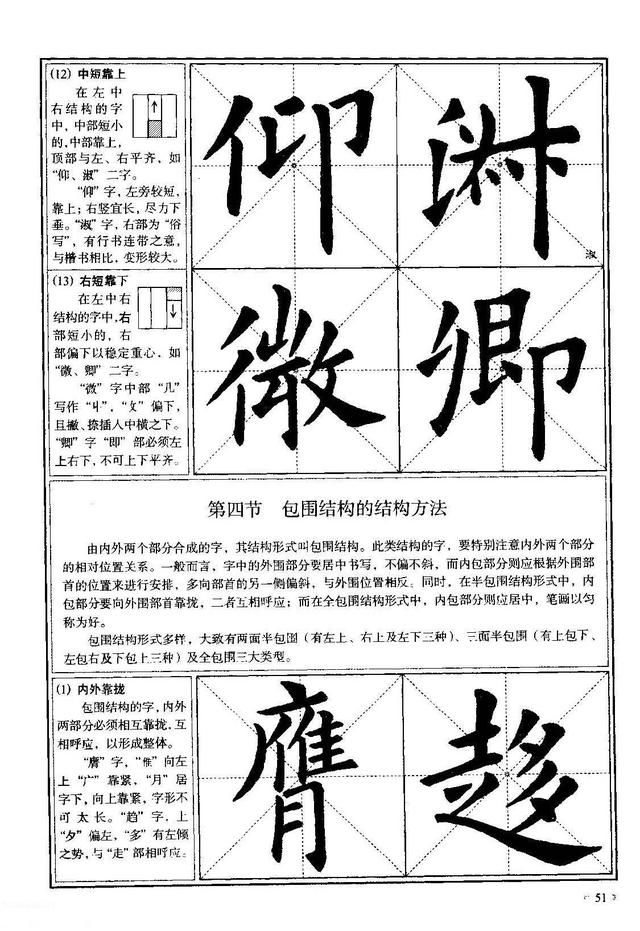 (12) 中短靠上
在左中
右结构的字
中，中部短小
的，中部靠上，
顶部与左、右平齐，如
“仰、淑”二字。
“仰”字，左旁较短，
靠上；右竖宜长，尽力下
垂。“淑”字，右部为“俗
写”，有行书连带之意，
与楷书相比，变形较大。
仰
淑
(13) 右短靠下
在左中右
结构的字中，右
部短小的，右
部偏下以稳定重心，如
“微、卿”二字。
“微”字中部“几”
写作“”，“攵”偏下，
且撇、捺插入中横之下。
“卿”字“即”部必须左
上右下，不可上下平齐。
微 卿
第四节 包围结构的结构方法
由内外两个部分合成的字，其结构形式叫包围结构。此类结构的字，要特别注意内外两个部分
的相对位置关系。一般而言，字中的外围部分要居中书写，不偏不斜，而内包部分则应根据外围部
首的位置来进行安排，多向部首的另一侧偏斜，与外围位置相反。同时，在半包围结构形式中，内
包部分要向外围部首靠拢，二者互相呼应；而在全包围结构形式中，内包部分则应居中，笔画以匀
称为好。
包围结构形式多样，大致有两面半包围（有左上、右上及左下三种）、三面半包围（有上包下、
左包右及下包上三种）及全包围三大类型。
(1) 内外靠拢
包围结构的字，内外
两部分必须相互靠拢，互
相呼应，以形成整体。
“膺”字，“倠”向左
上“广”靠紧，“月”居
字下，向上靠紧，字形不
可太长。“趋”字，上
“夕”偏左，“多”有左倾
之势，与“走”部相呼应。
膺 趍
51